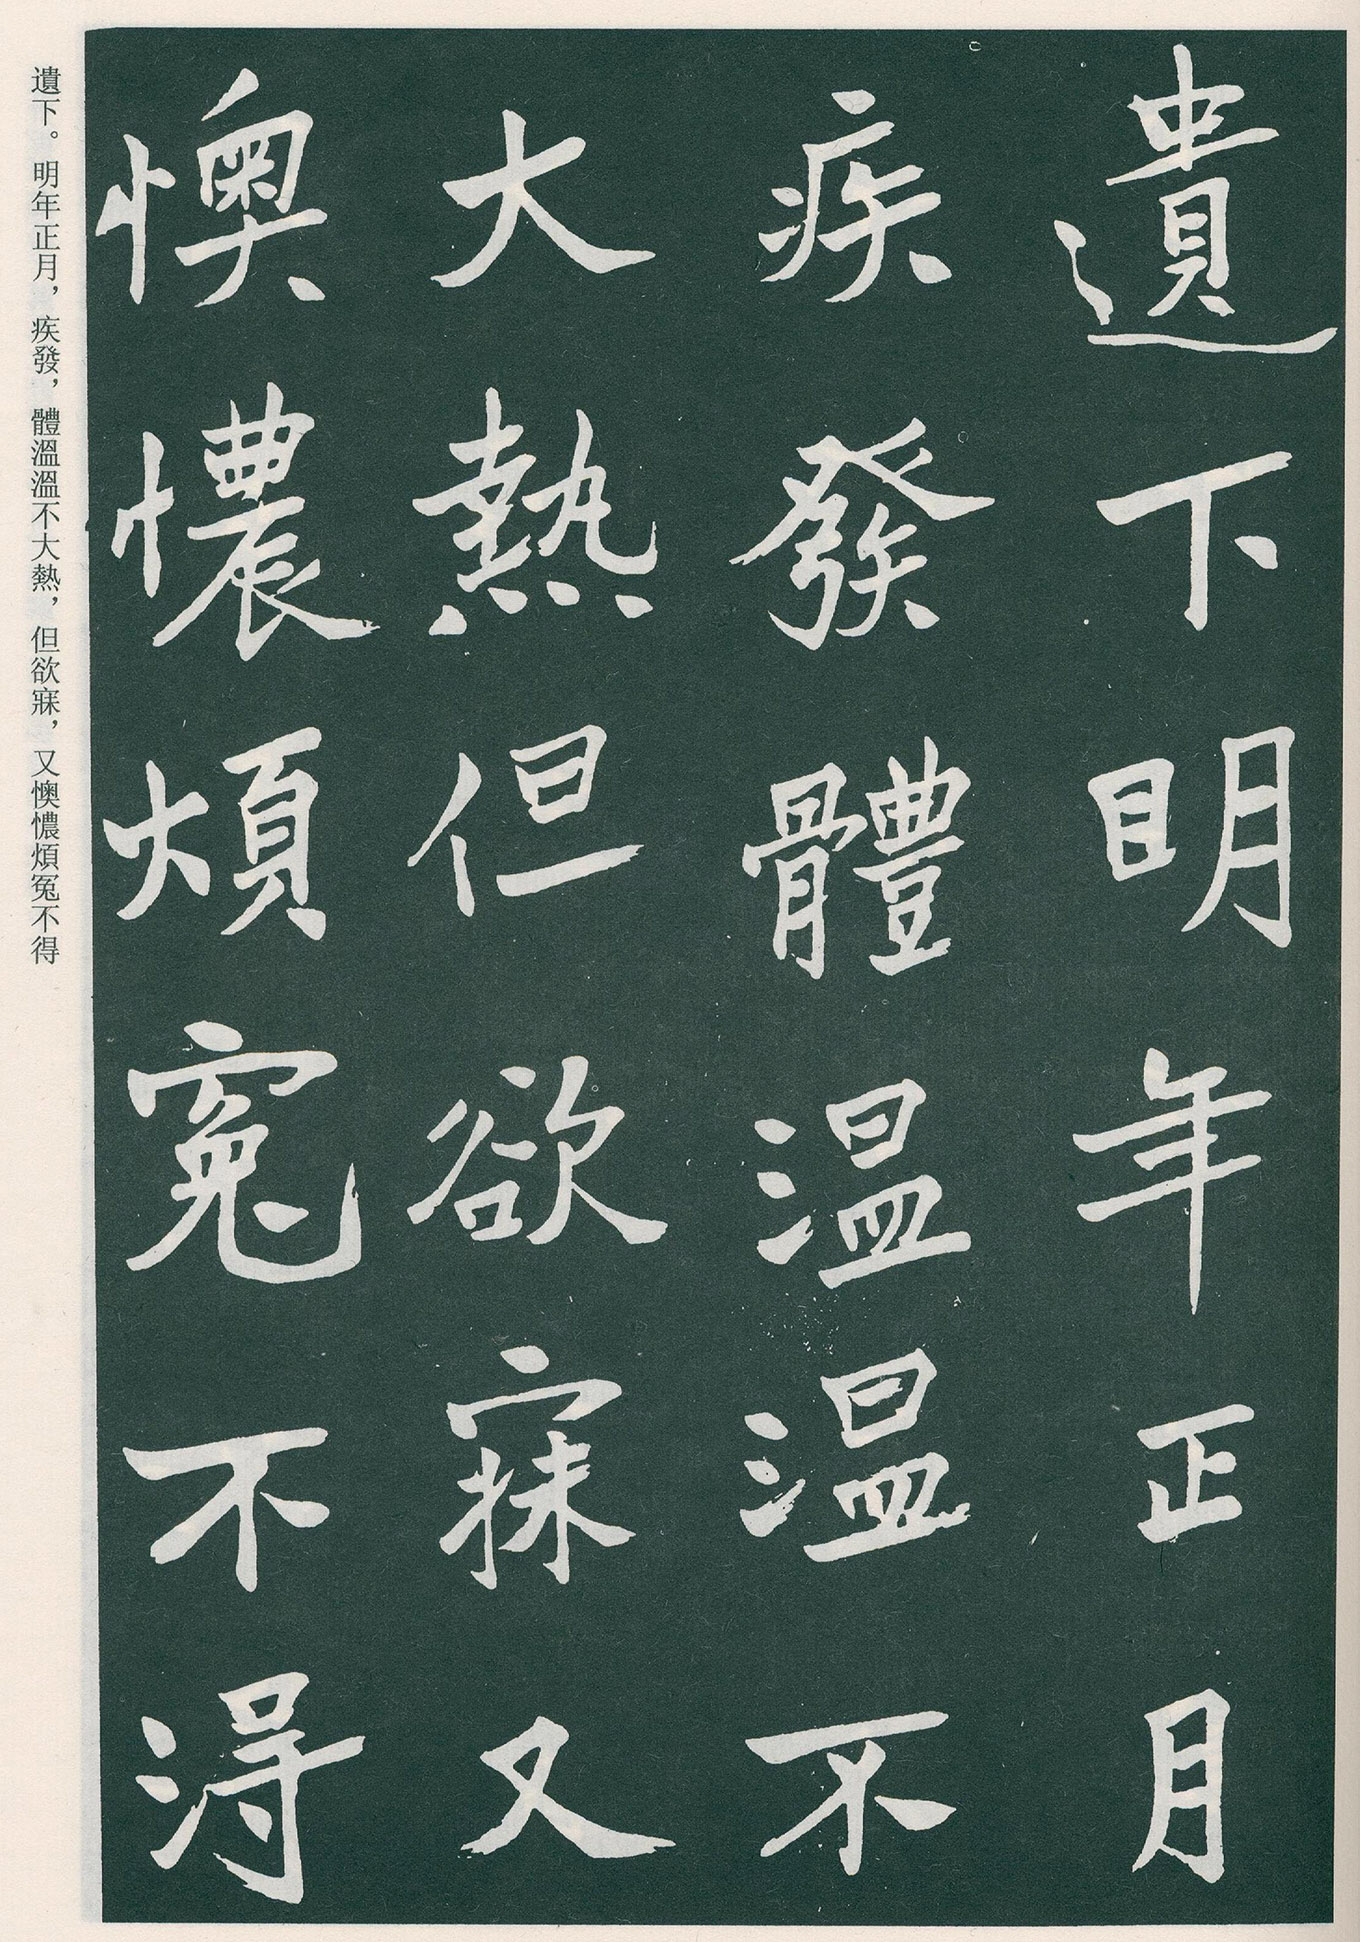 遺下明年正月
疾發體溫溫不
大熱但欲寐又
懊憹煩冤不得
遺下。明年正月，疾發，體溫溫不大熱，但欲寐，又懊憹煩冤不得